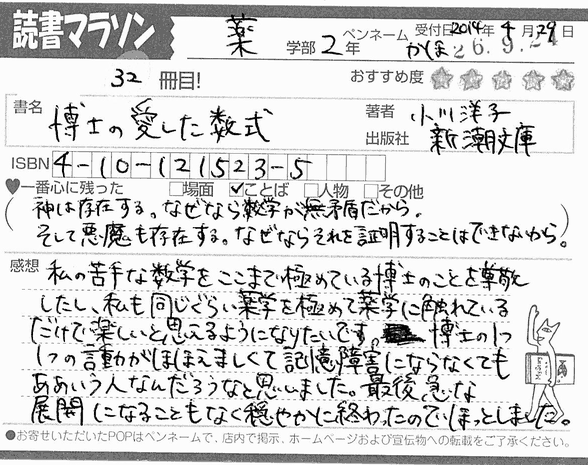 読書マラソン
薬 学部 2年 ペンネーム かほ 受付日 2014年 4月 29日
26.9.24
32 冊目! おすすめ度 ☆☆☆☆☆
書名 博士の愛した数式 著者 小川洋子
出版社 新潮文庫
ISBN 4-10-121523-5
♥一番心に残った □場面 ☑ことば □人物 □その他
神は存在する。なぜなら数学が無矛盾だから。
そして悪魔も存在する。なぜならそれを証明することはできないから。
感想 私の苦手な数学をここまで極めている博士のことを尊敬
したし、私も同じぐらい薬学を極めて薬学に触れている
だけで楽しいと思えるようになりたいです。博士の1つ
1つの言動がほほえましくて記憶障害にならなくても
ああいう人なんだろうなと思いました。最後急な
展開になることもなく穏やかに終わったのでほっとしました。
●お寄せいただいたPOPはペンネームで、店内で掲示、ホームページおよび宣伝物への転載をご了承ください。